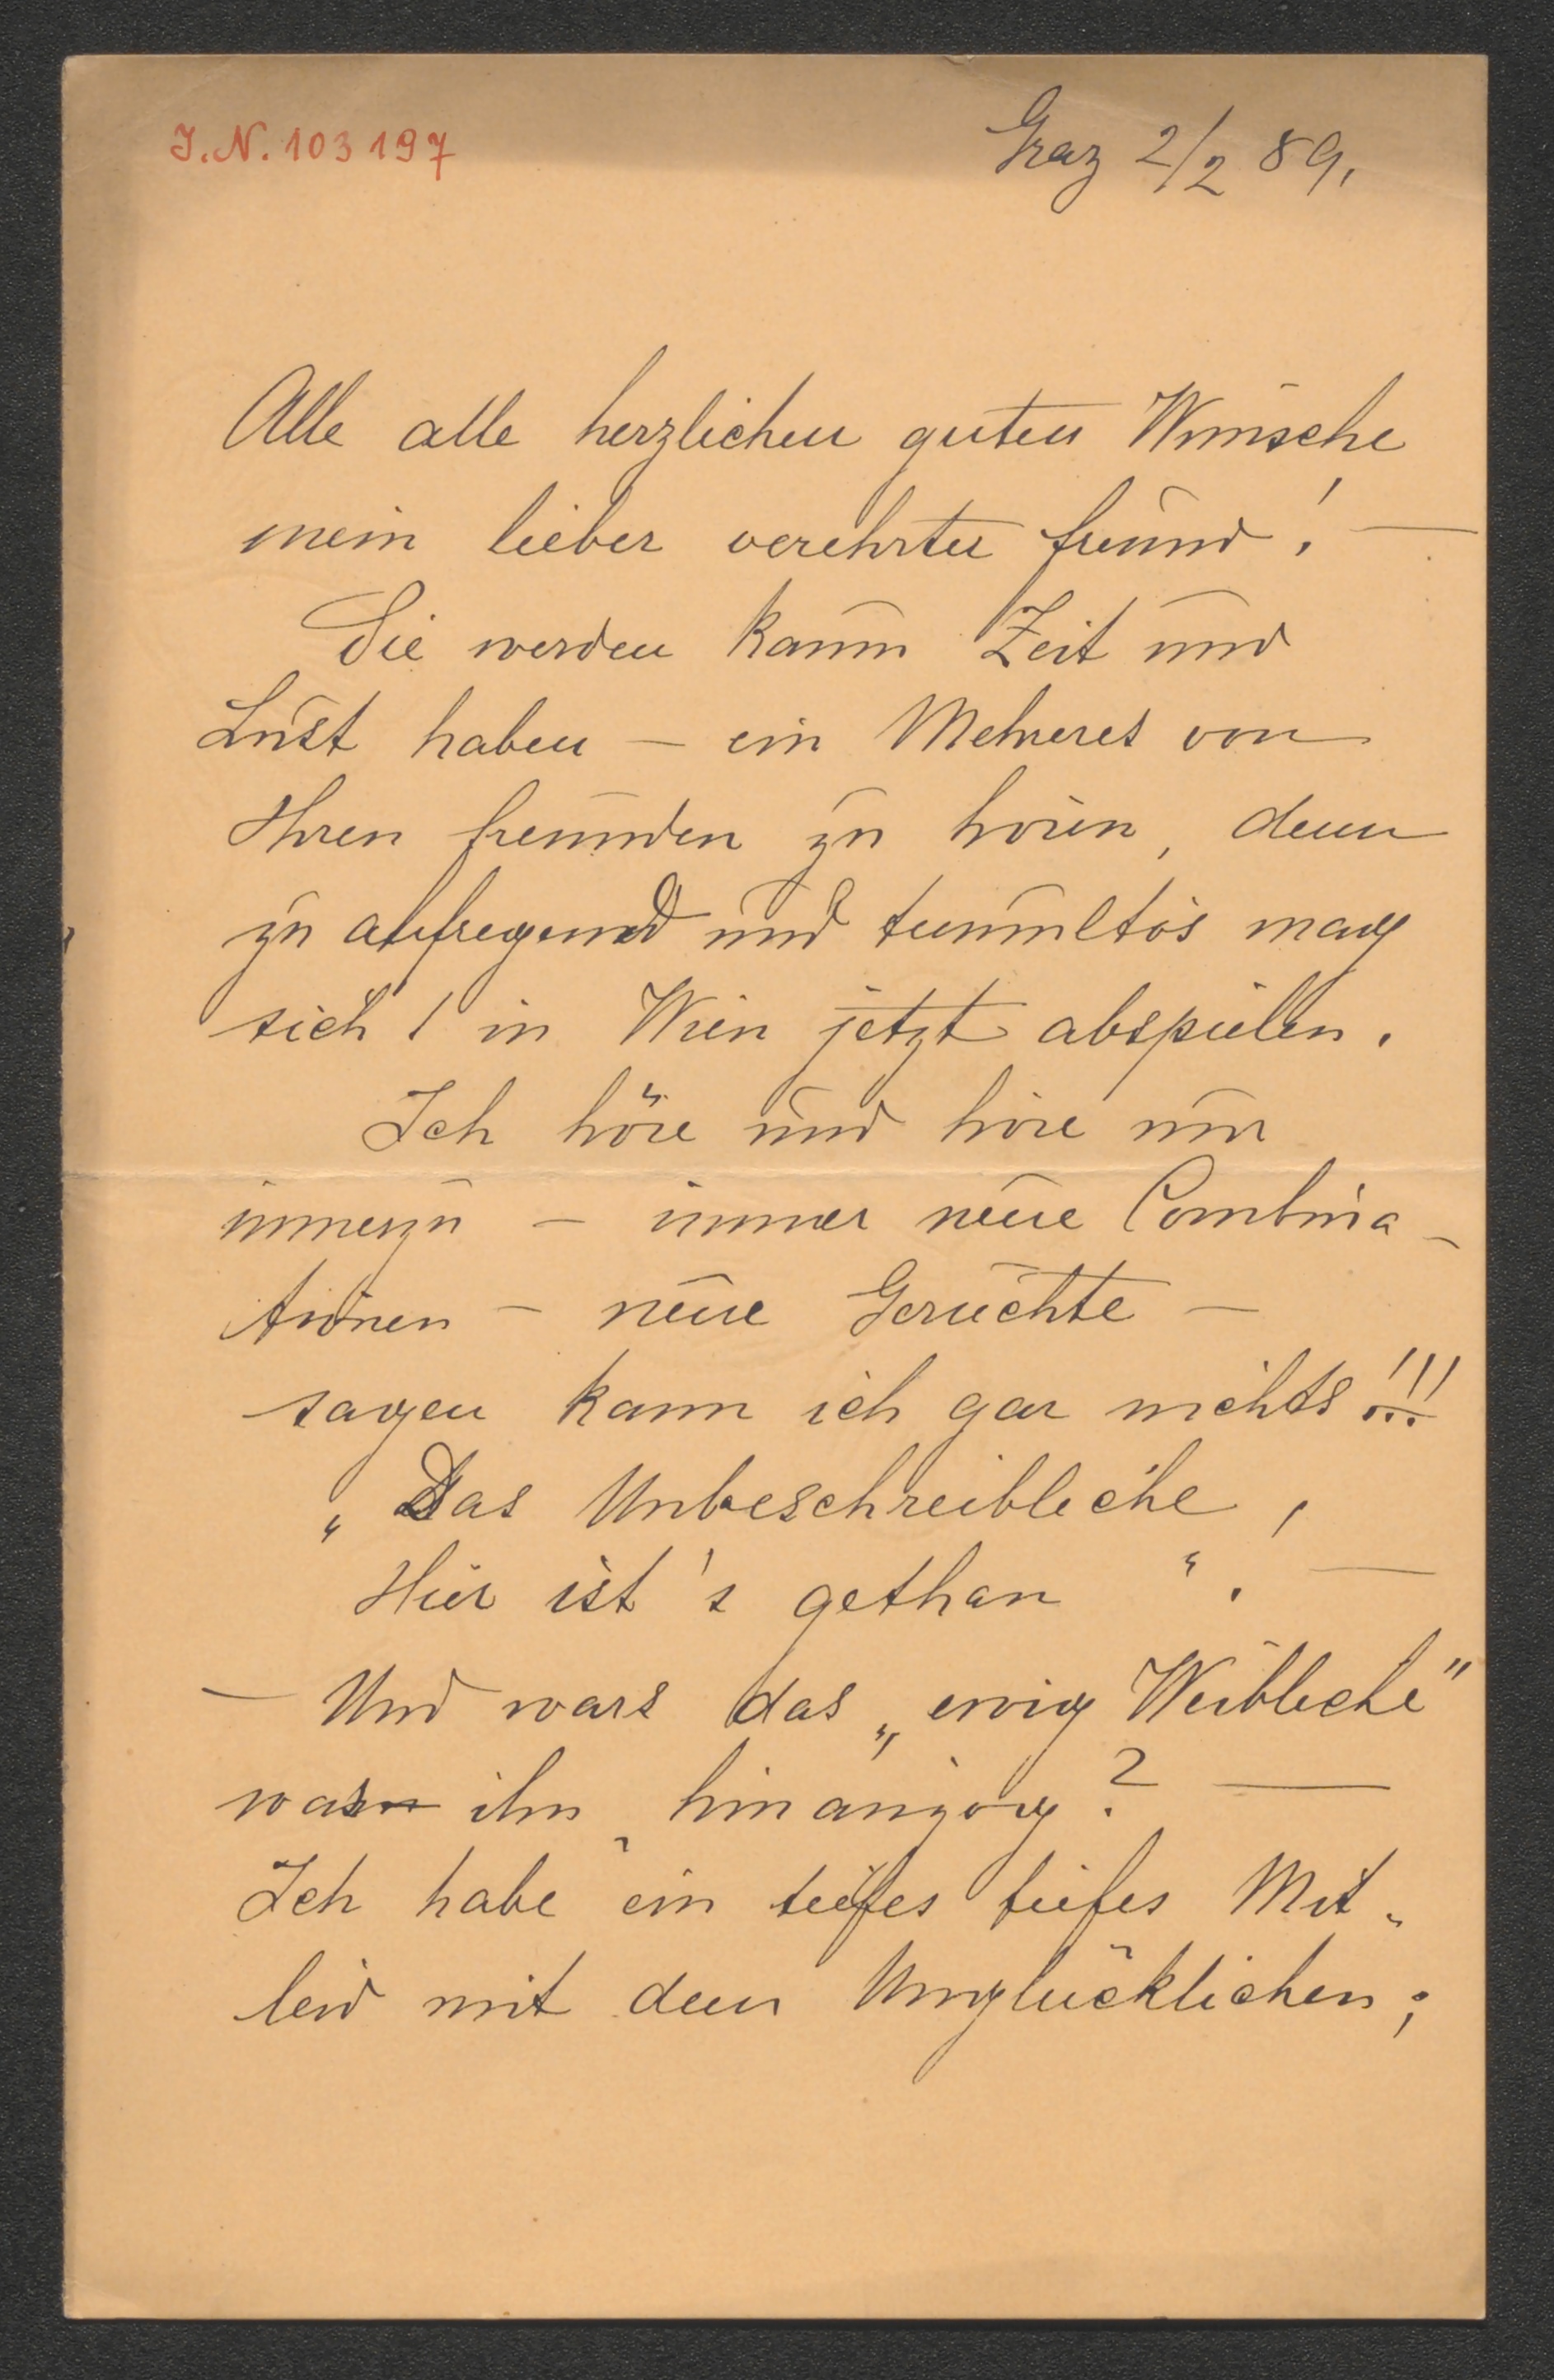 J.N. 103197
Graz 2/2 89.
Alle alle herzlichen guten Wünsche
mein lieber verehrter Freund! —
Sie werden kaum Zeit und
Lust haben — ein Mehreres von
Ihren Freunden zu hören, denn
zu aufregend und tumultös mag
sich's in Wien jetzt abspielen.
Ich höre und höre nur
immerzu — immer neue Combina-
tionen — neue Gerüchte —
sagen kann ich gar nichts!!!
„Das Unbeschreibliche,
Hier ist's gethan“. —
— Und wars das „ewig Weibliche"
was ihn hinanzog? —
Ich habe ein tiefes tiefes Mit-
leid mit dem Unglücklichen;